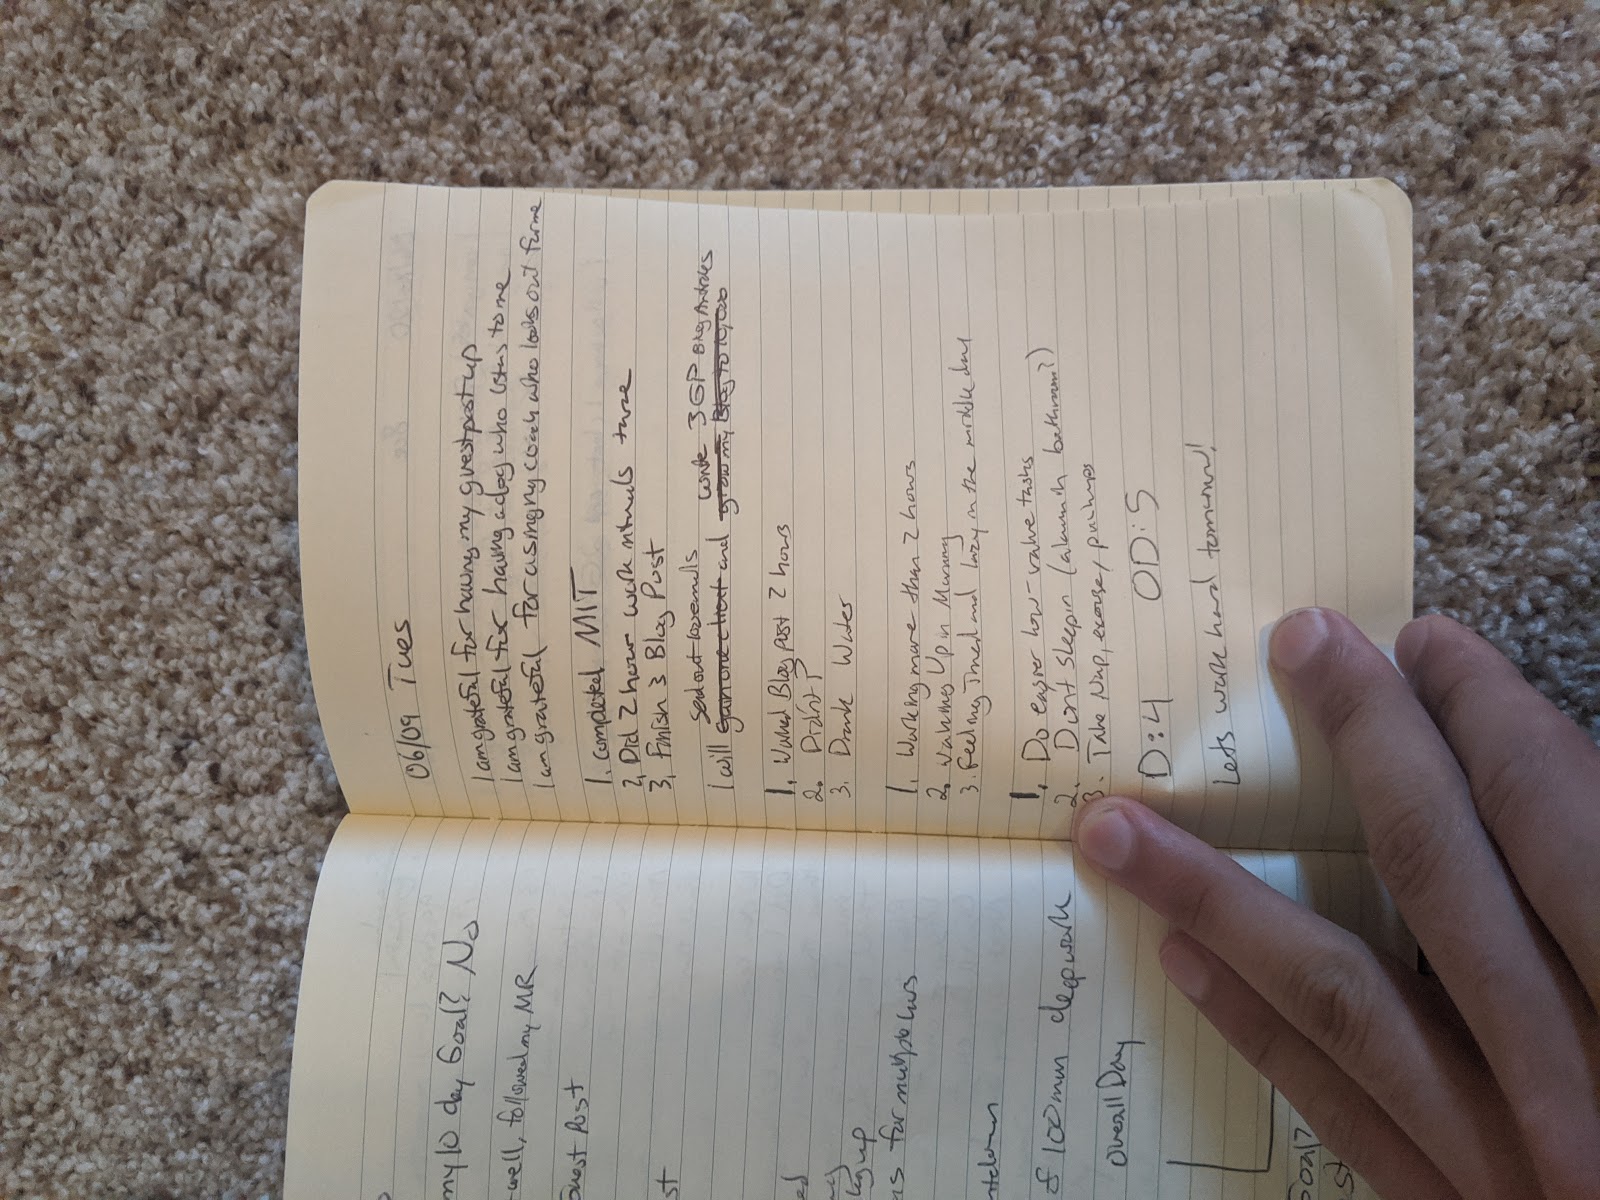 my 10 day Goal? No
well, followed my MR
Guest Post
st
ed
ay
king up
ns for multiple hrs
ntdown
of 100 min deepwork
overall Day
Goal?
st
06/09 Tues
I am grateful for having my guest post up
I am grateful for having a dog who listens to me
I am grateful for using my coach who looks out for me
1. Completed MIT
2. Did 2 hour work intervals twice
3. Finish 3 Blog Post
send out emails write 3 GP Blog Articles
I will gain one client and grow my Blog to 10,000
1. Worked Blog post 2 hours
2. Didn't
3. Drank Water
1. Working more than 2 hours
2. Waking Up in Morning
3. Feeling Tired and lazy in the middle day
1. Do easier low-value tasks
2. Don't sleep in (alarm in bathroom)
3. Take Nap, exercise, pushups
D: 4 OD: 5
Lets work hard tomorrow!